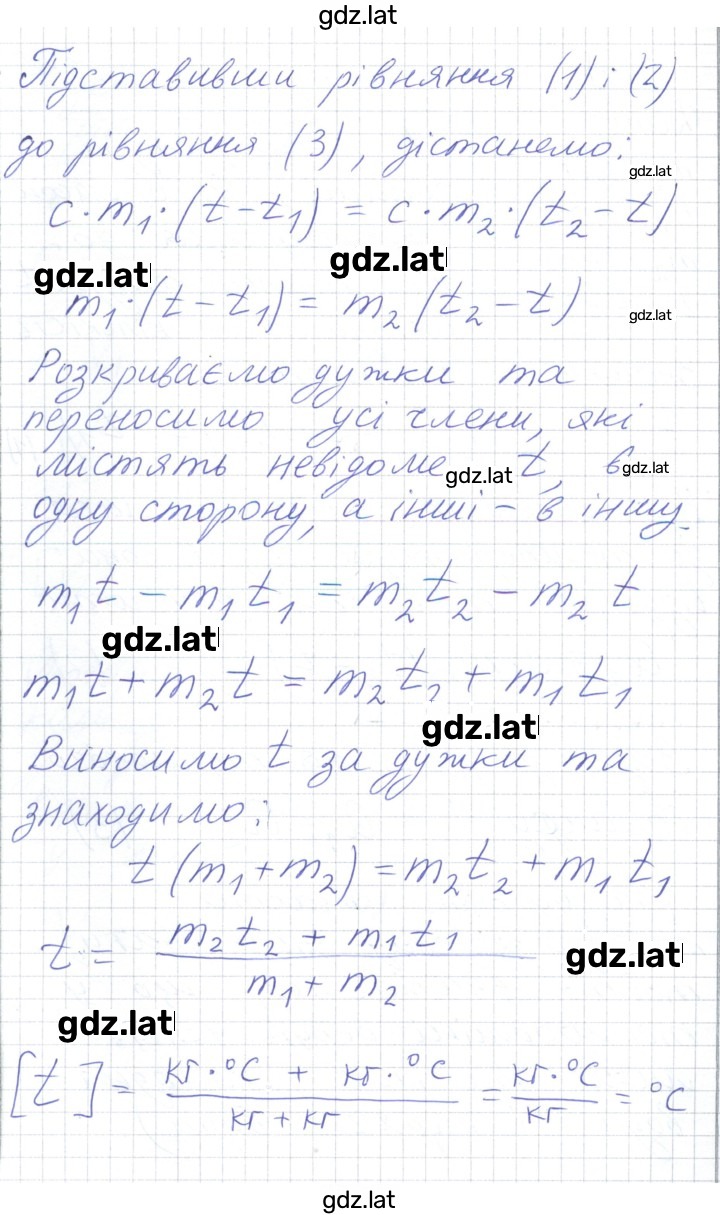 gdz.lat
Підставивши рівняння (1) і (2)
до рівняння (3), дістанемо:
gdz.lat
c·m₁·(t-t₁) = c·m₂·(t₂-t)
gdz.lat gdz.lat
m₁·(t-t₁) = m₂(t₂-t)
gdz.lat
Розкриваємо дужки та
переносимо усі члени, які
містять невідоме gdz.lat t, в gdz.lat
одну сторону, а інші - в іншу.
m₁t - m₁t₁ = m₂t₂ - m₂t
gdz.lat
m₁t + m₂t = m₂t₂ + m₁t₁
gdz.lat
Виносимо t за дужки та
знаходимо:
t(m₁+m₂) = m₂t₂ + m₁t₁
t = (m₂t₂ + m₁t₁)/(m₁ + m₂)
gdz.lat
gdz.lat
[t] = (кг·°C + кг·°C)/(кг + кг) = (кг·°C)/кг = °C
gdz.lat